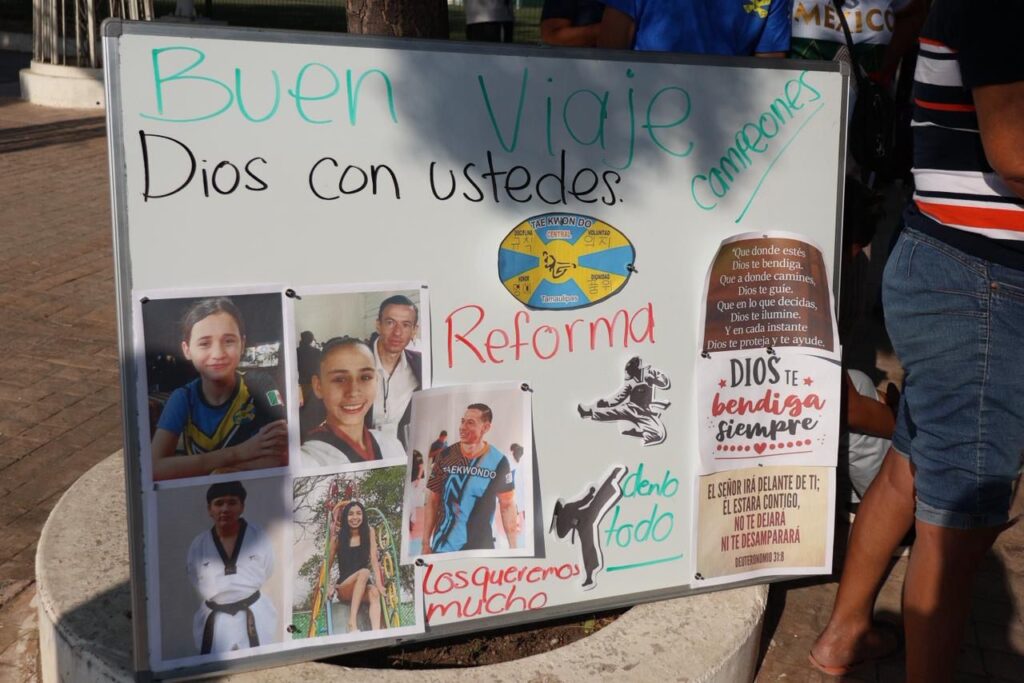 Buen Viaje
Campeones
Dios con ustedes.
TAE KWON DO
CENTRAL
DISCIPLINA
VOLUNTAD
규칙
의지
HONOR
DIGNIDAD
Tamaulipas
Reforma
"Que donde estés
Dios te bendiga.
Que a donde camines,
Dios te guíe.
Que en lo que decidas,
Dios te ilumine.
Y en cada instante
Dios te proteja y te ayude.
DIOS TE
bendiga
siempre
EL SEÑOR IRÁ DELANTE DE TI;
ÉL ESTARÁ CONTIGO,
NO TE DEJARÁ
NI TE DESAMPARARÁ
DEUTERONOMIO 31:8
denlo
todo
TAEKWONDO
Los queremos
mucho
MÉXICO